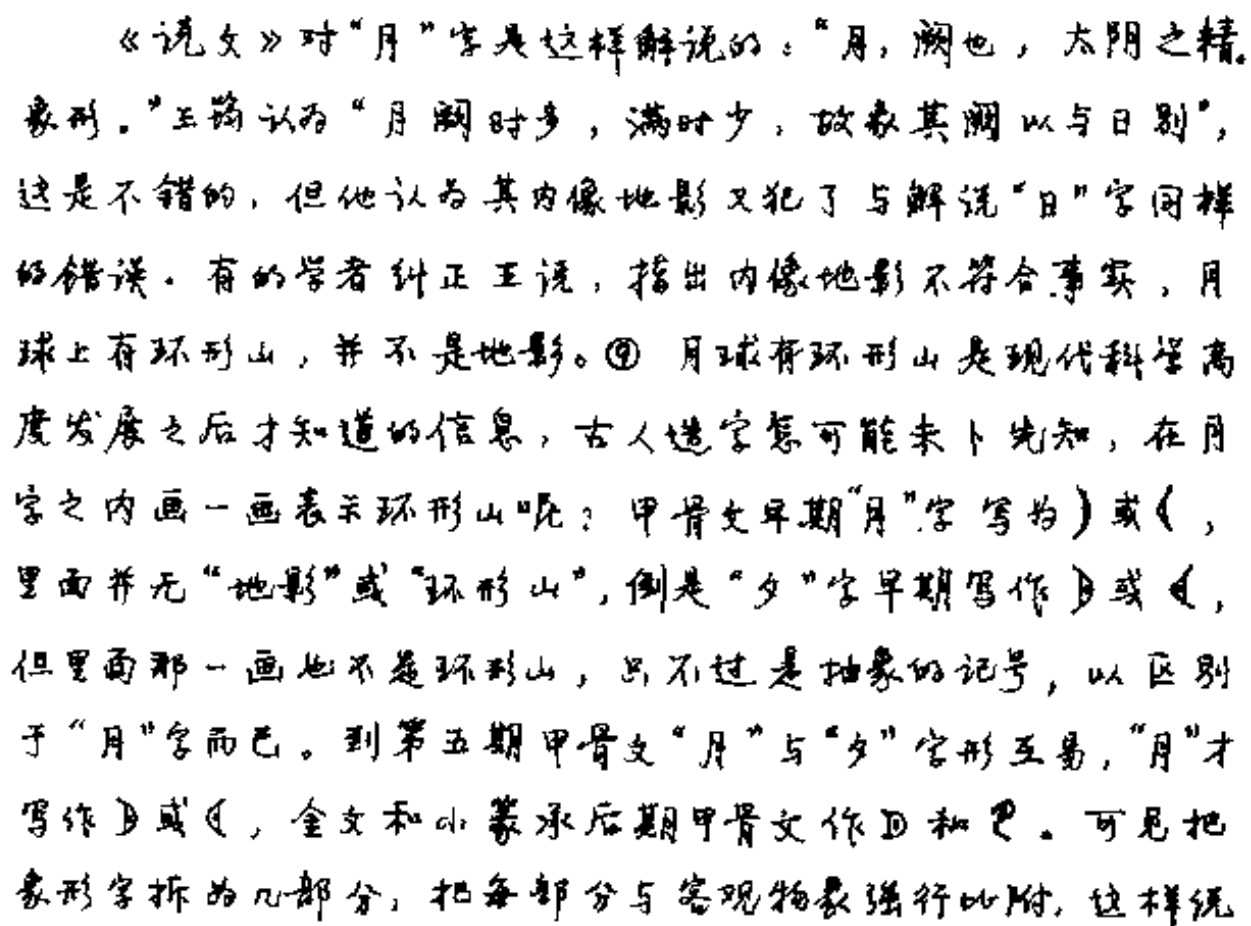 《说文》对“月”字是这样解说的：“月，阙也，太阴之精。
象形。”王筠认为“月阙时多，满时少，故象其阙以与日别”，
这是不错的，但他认为其内像地影又犯了与解说“日”字同样
的错误。有的学者纠正王说，指出内像地影不符合事实，月
球上有环形山，并不是地影。⑨ 月球有环形山是现代科学高
度发展之后才知道的信息，古人造字怎可能未卜先知，在月
字之内画一画表示环形山呢？甲骨文早期“月”字写为)或(，
里面并无“地影”或“环形山”，倒是“夕”字早期写作或，
但里面那一画也不是环形山，只不过是抽象的记号，以区别
于“月”字而已。到第五期甲骨文“月”与“夕”字形互易，“月”才
写作或，金文和小篆承后期甲骨文作和。可见把
象形字拆为几部分，把每部分与客观物象强行比附，这样统